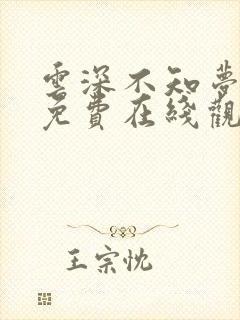 雲深不知夢
免費在綫觀
王宗忱